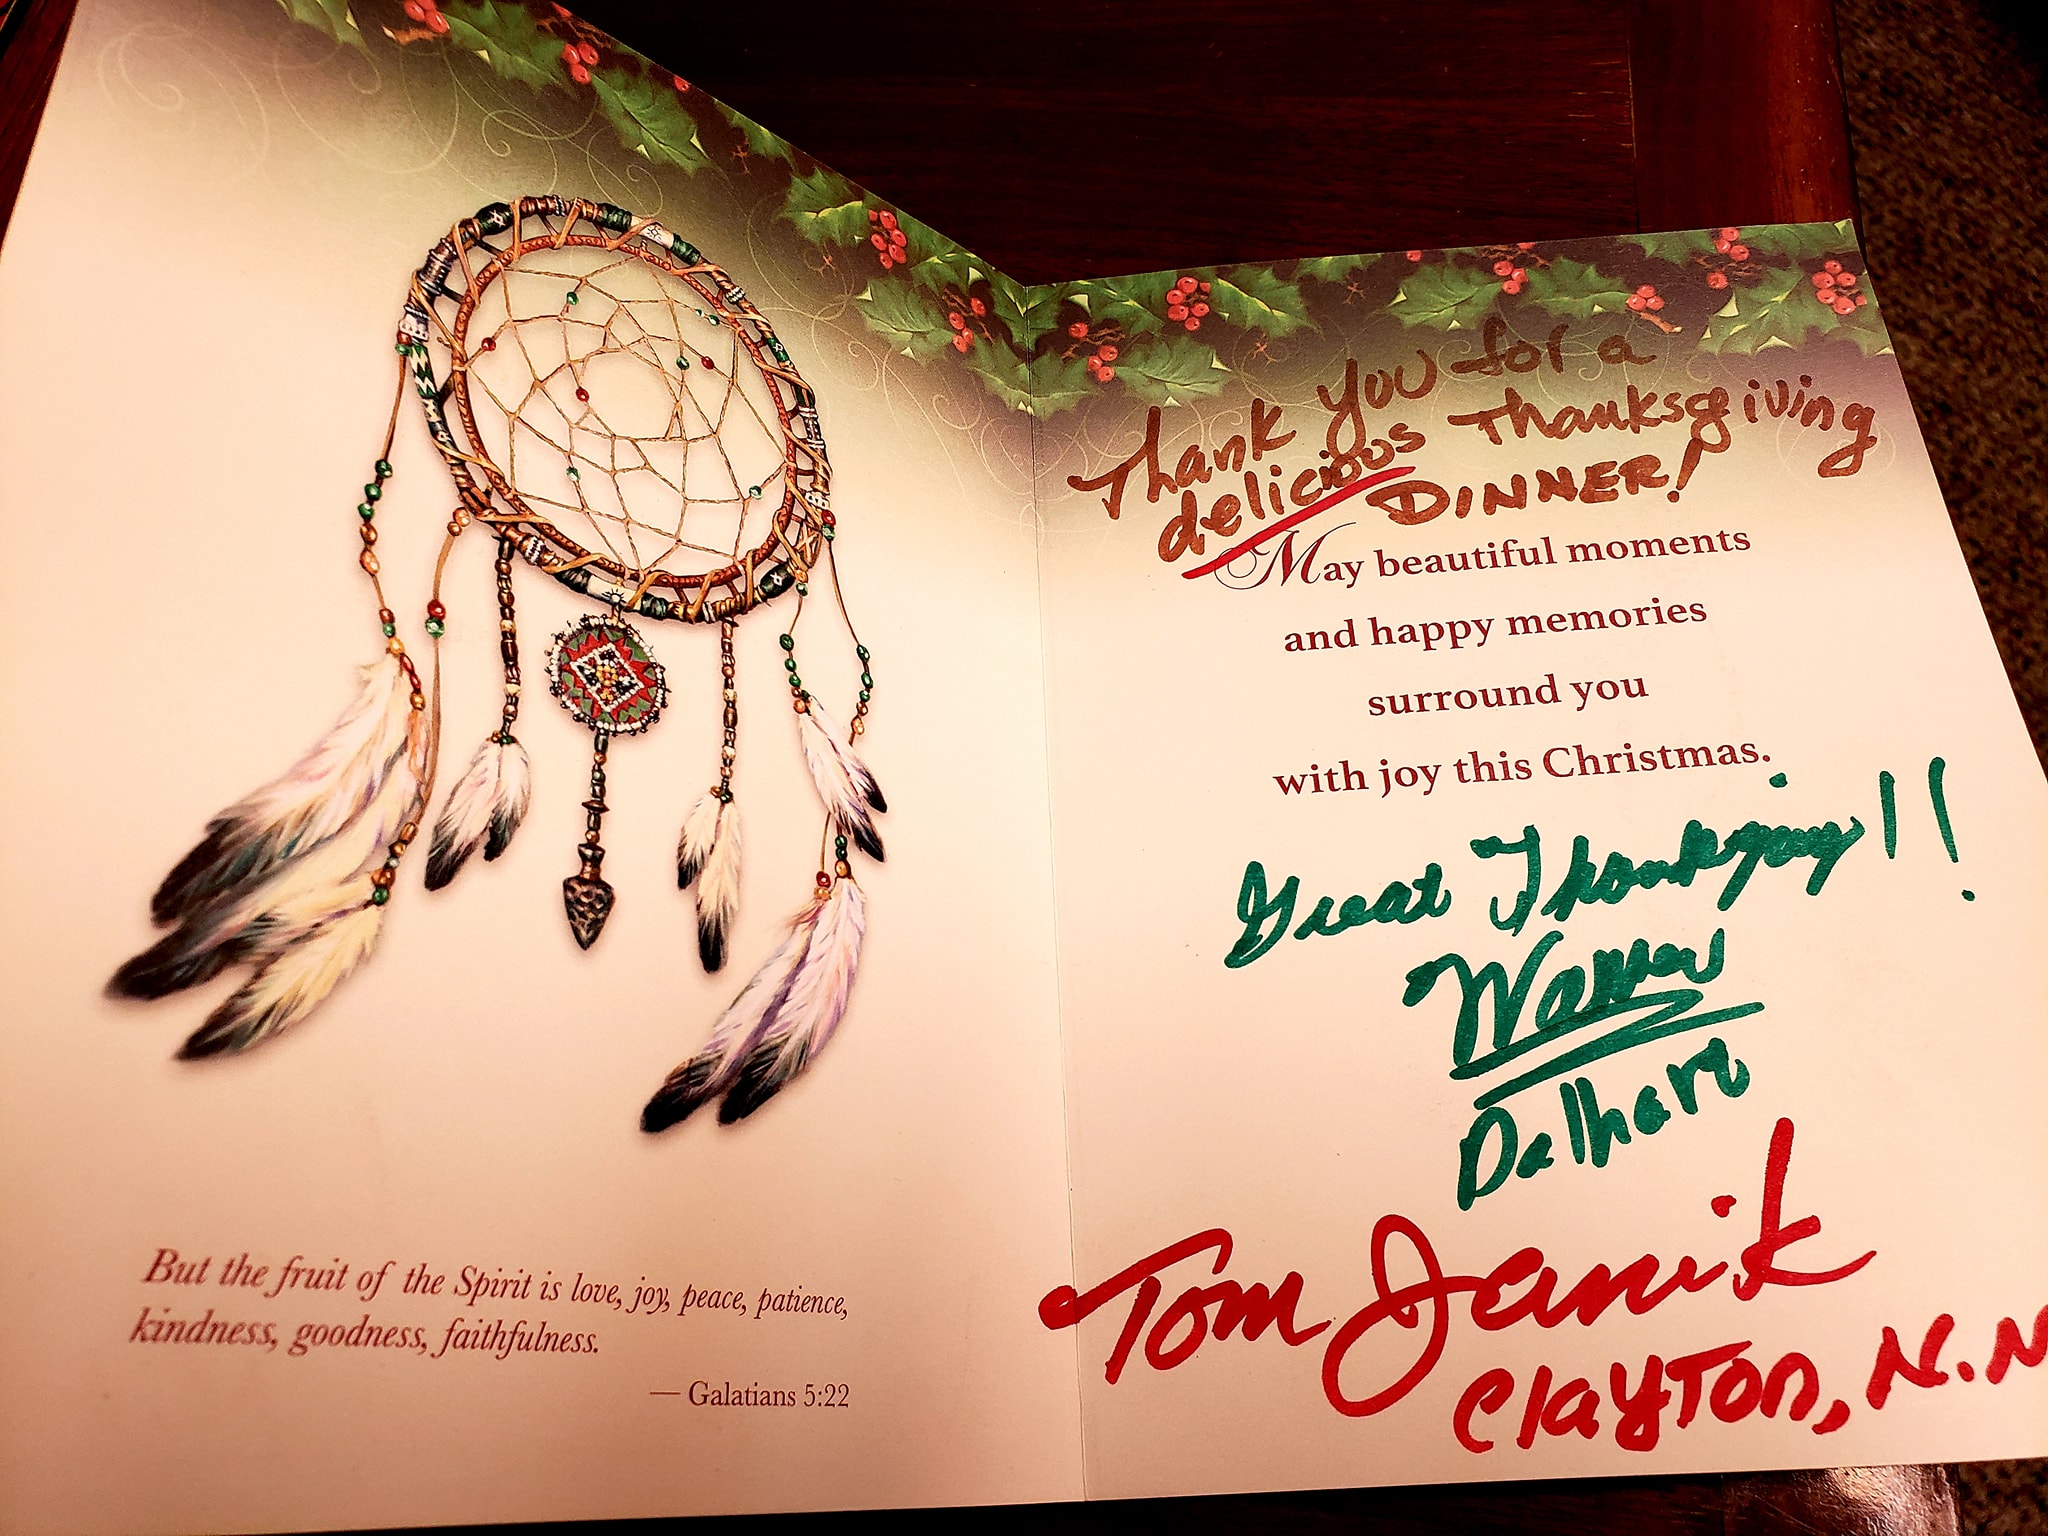 But the fruit of the Spirit is love, joy, peace, patience,
kindness, goodness, faithfulness.
— Galatians 5:22
Thank you for a
delicious Thanksgiving
DINNER!
May beautiful moments
and happy memories
surround you
with joy this Christmas.
Great Thanksgiving!!
Dalhart
Tom Janik
Clayton, N.